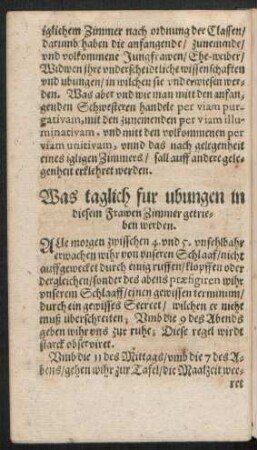 iglichem Zimmer nach ordnung der Classen/
darumb haben die anfangende/ zunemende/
vnd volkommene Jungfrawen/ Ehe-wiber/
Widwen jhre vnderscheidtliche wissenschaften
vnd vbungen/ in wilchen sie vnderwiesen wer-
den. Was aber vnd wie man mitt den anfan-
genden Schwesteren handele per viam pur-
gativam, mit den zunemenden per viam illu-
minativam, vnd mitt den volkommenen per
viam unitivam, vnnd das nach gelegenheit
eines igligen Zimmers/ sall auff andere gele-
genheit erklehret werden.
Was taglich fur ubungen in
diesem Frawen Zimmer getrie-
ben werden.
Alle morgen zwisschen 4. vnd 5. vnfehlbahr
erwachen wihr von vnseren Schlaaf/ nicht
auffgewecket durch einig ruffen/ klopffen oder
dergleichen/ sonder des abens præfigiren wihr
vnserem Schlaaff/ einen gewissen terminum/
durch ein gewisses Secreet/ wilchen er nicht
muß überschreiten; Vmb die 9 des Abends
geben wihr vns zur ruhe; Diese regel wirdt
starck observiret.
Vmb die 11 des Mittags/ vmb die 7 des A-
bens/ gehen wihr zur Tafel/ die Maalzeit wee-
ret